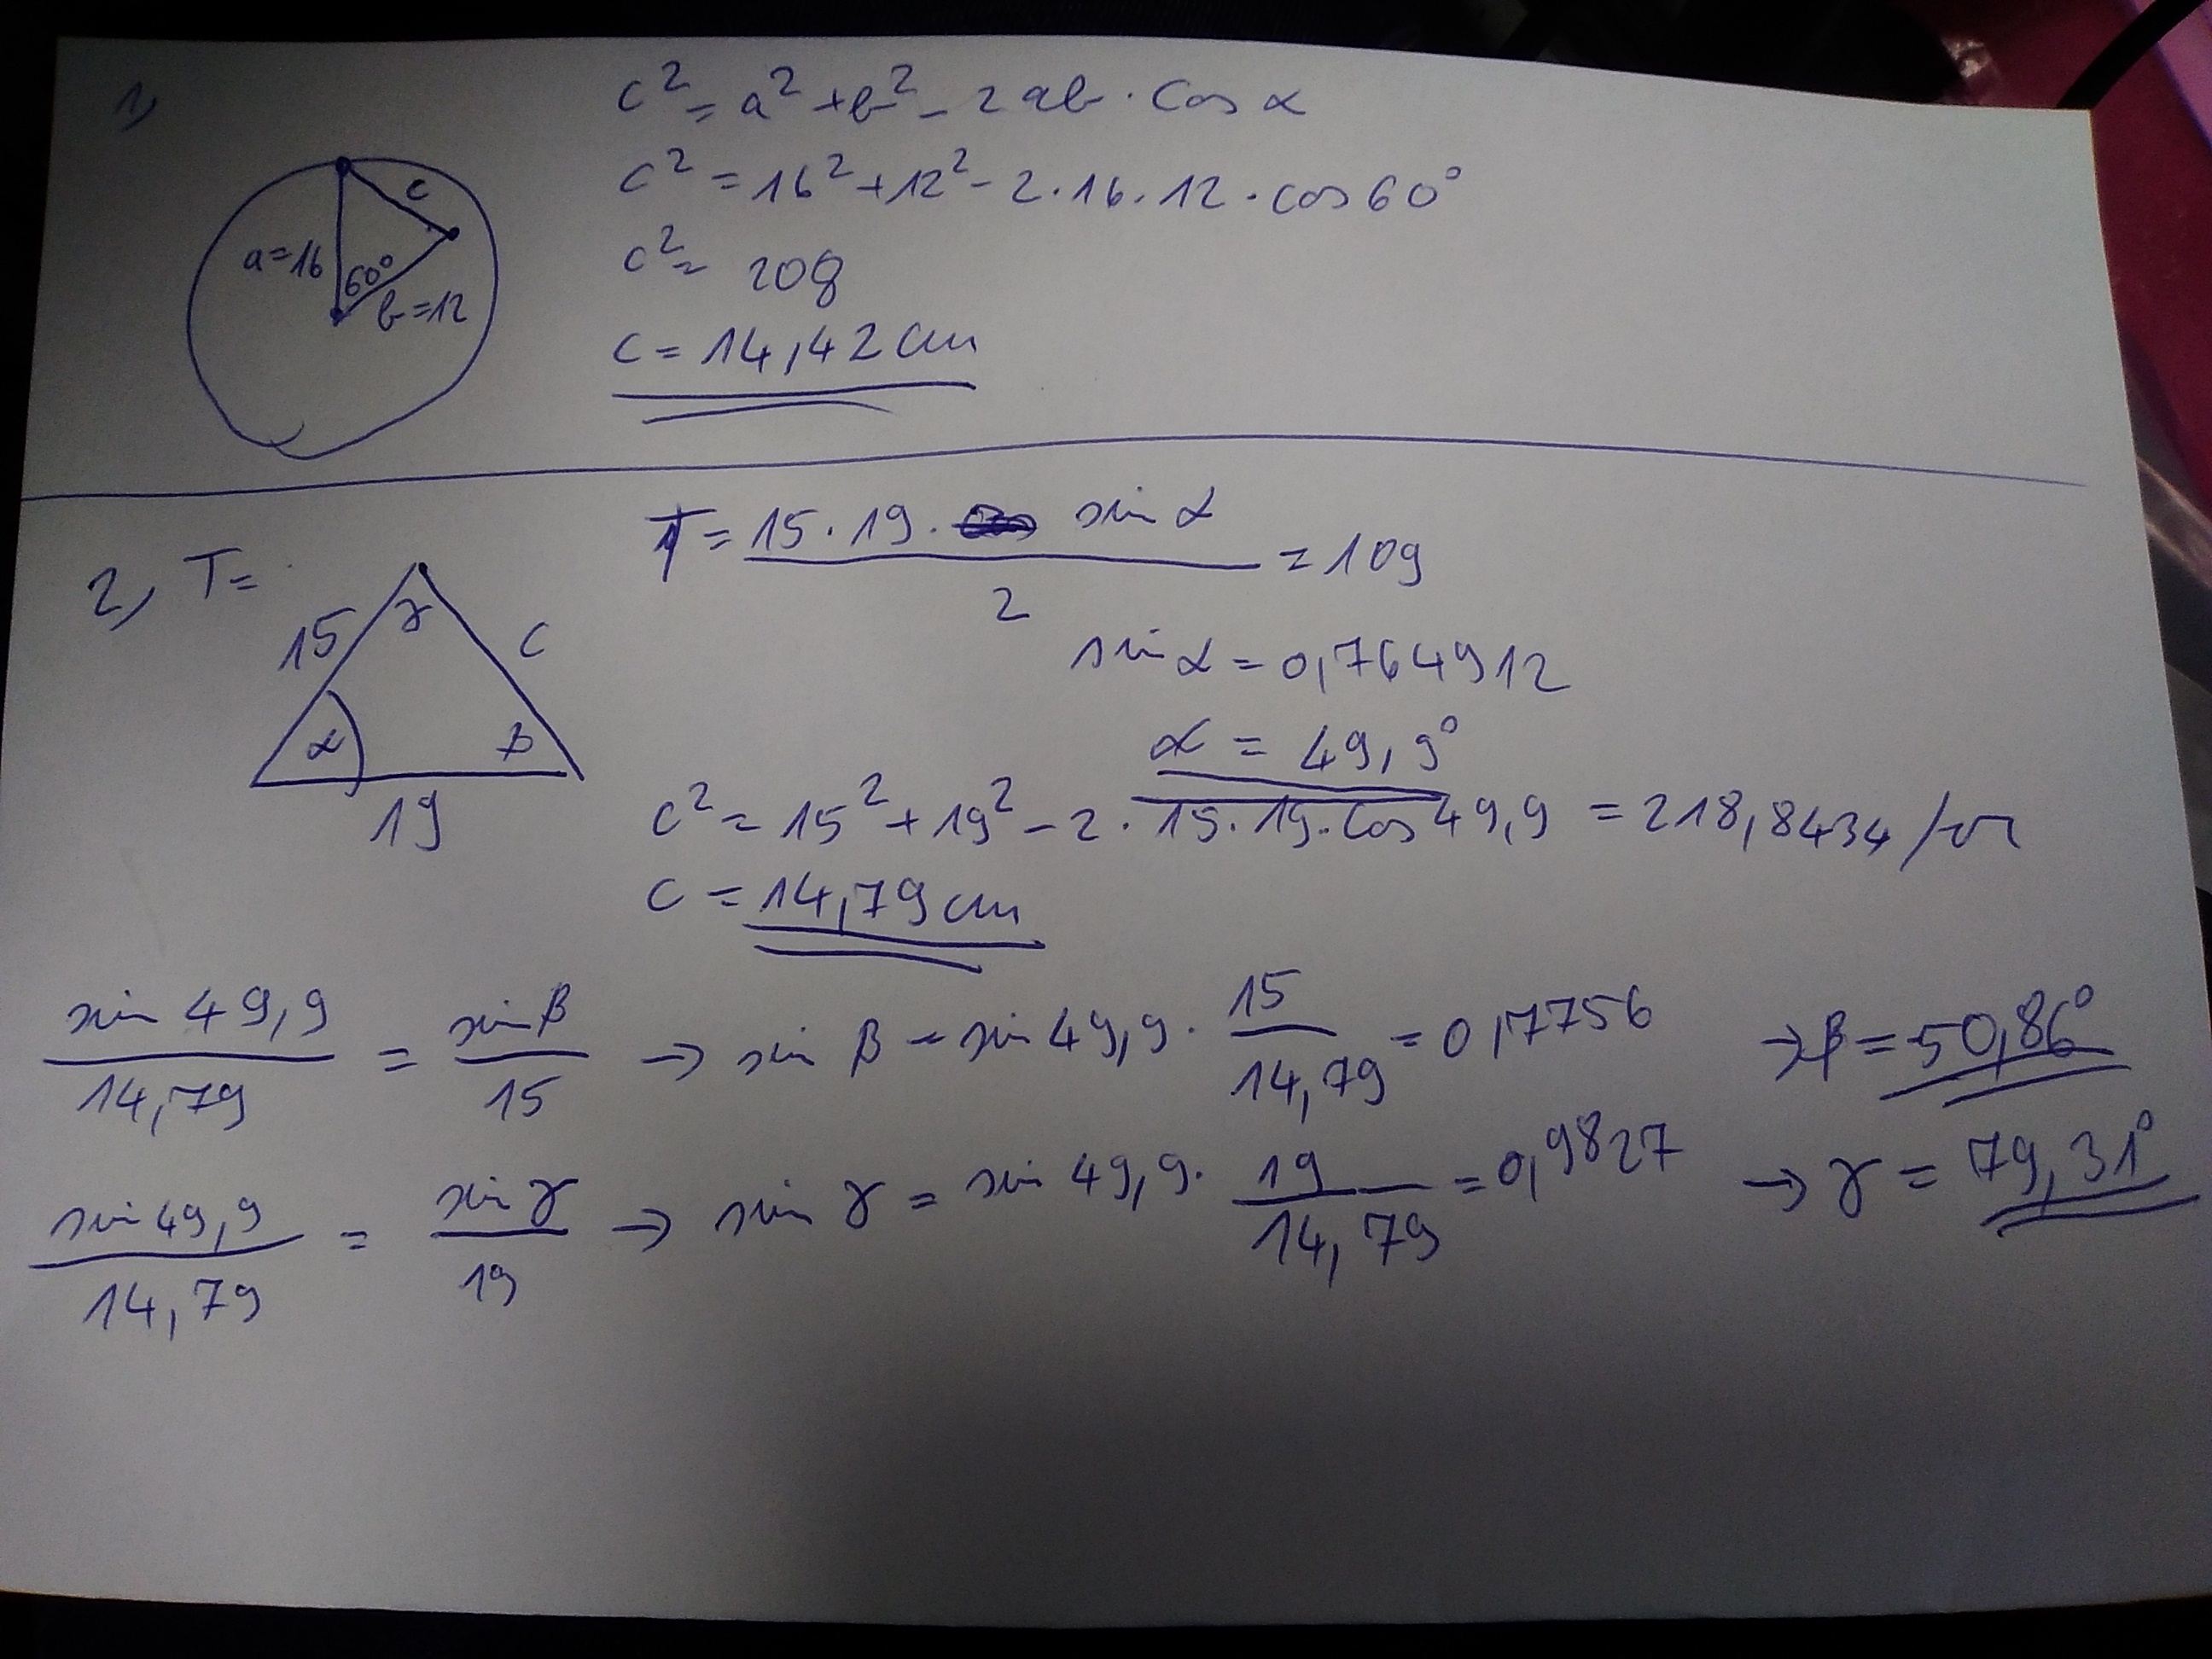 1,
c² = a² + b² - 2ab · cos α
c² = 16² + 12² - 2·16·12 · cos 60°
c² = 208
c = 14,42 cm
c
a=16
60°
b=12
2, T=
15
γ
c
α
β
19
T = (15 · 19 · sin α) / 2 = 109
sin α = 0,764912
α = 49,9°
c² = 15² + 19² - 2 · 15 · 19 · cos 49,9 = 218,8434 /√
c = 14,79 cm
sin 49,9 / 14,79 = sin β / 15 → sin β = sin 49,9 · 15 / 14,79 = 0,7756 → β = 50,86°
sin 49,9 / 14,79 = sin γ / 19 → sin γ = sin 49,9 · 19 / 14,79 = 0,9827 → γ = 79,31°